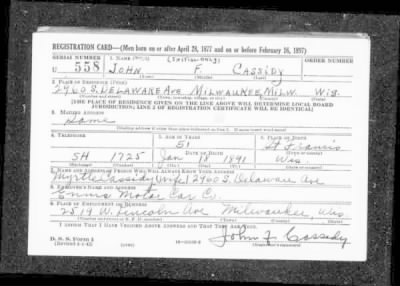 REGISTRATION CARD—(Men born on or after April 28, 1877 and on or before February 16, 1897)
SERIAL NUMBER 1. NAME (Print) (INITIAL ONLY)
U 558 JOHN F. CASSIDY
(First) (Middle) (Last)
2. PLACE OF RESIDENCE (Print)
2960 S. DELAWARE AVE MILWAUKEE, MILW. WIS.
(Number and street) (Town, township, village, or city) (County) (State)
[THE PLACE OF RESIDENCE GIVEN ON THE LINE ABOVE WILL DETERMINE LOCAL BOARD
JURISDICTION; LINE 2 OF REGISTRATION CERTIFICATE WILL BE IDENTICAL]
3. MAILING ADDRESS
Same
[Mailing address if other than place indicated on line 2. If same insert word same]
4. TELEPHONE 5. AGE IN YEARS 6. PLACE OF BIRTH
51 St Francis
DATE OF BIRTH (Town or county)
SH 1725 Jan 18 1891 Wis
(Exchange) (Number) (Mo.) (Day) (Yr.) (State or country)
7. NAME AND ADDRESS OF PERSON WHO WILL ALWAYS KNOW YOUR ADDRESS
Myrtle Cassidy (wife) 2960 S. Delaware Ave
8. EMPLOYER'S NAME AND ADDRESS
Motor Car Co.
9. PLACE OF EMPLOYMENT OR BUSINESS
2519 W. Lincoln Ave Milwaukee, Wis.
(Number and street or R. F. D. number) (Town) (County) (State)
I AFFIRM THAT I HAVE VERIFIED ABOVE ANSWERS AND THAT THEY ARE TRUE.
D. S. S. Form 1
(Revised 4-1-42) (over) John F Cassidy
(Registrant's signature)